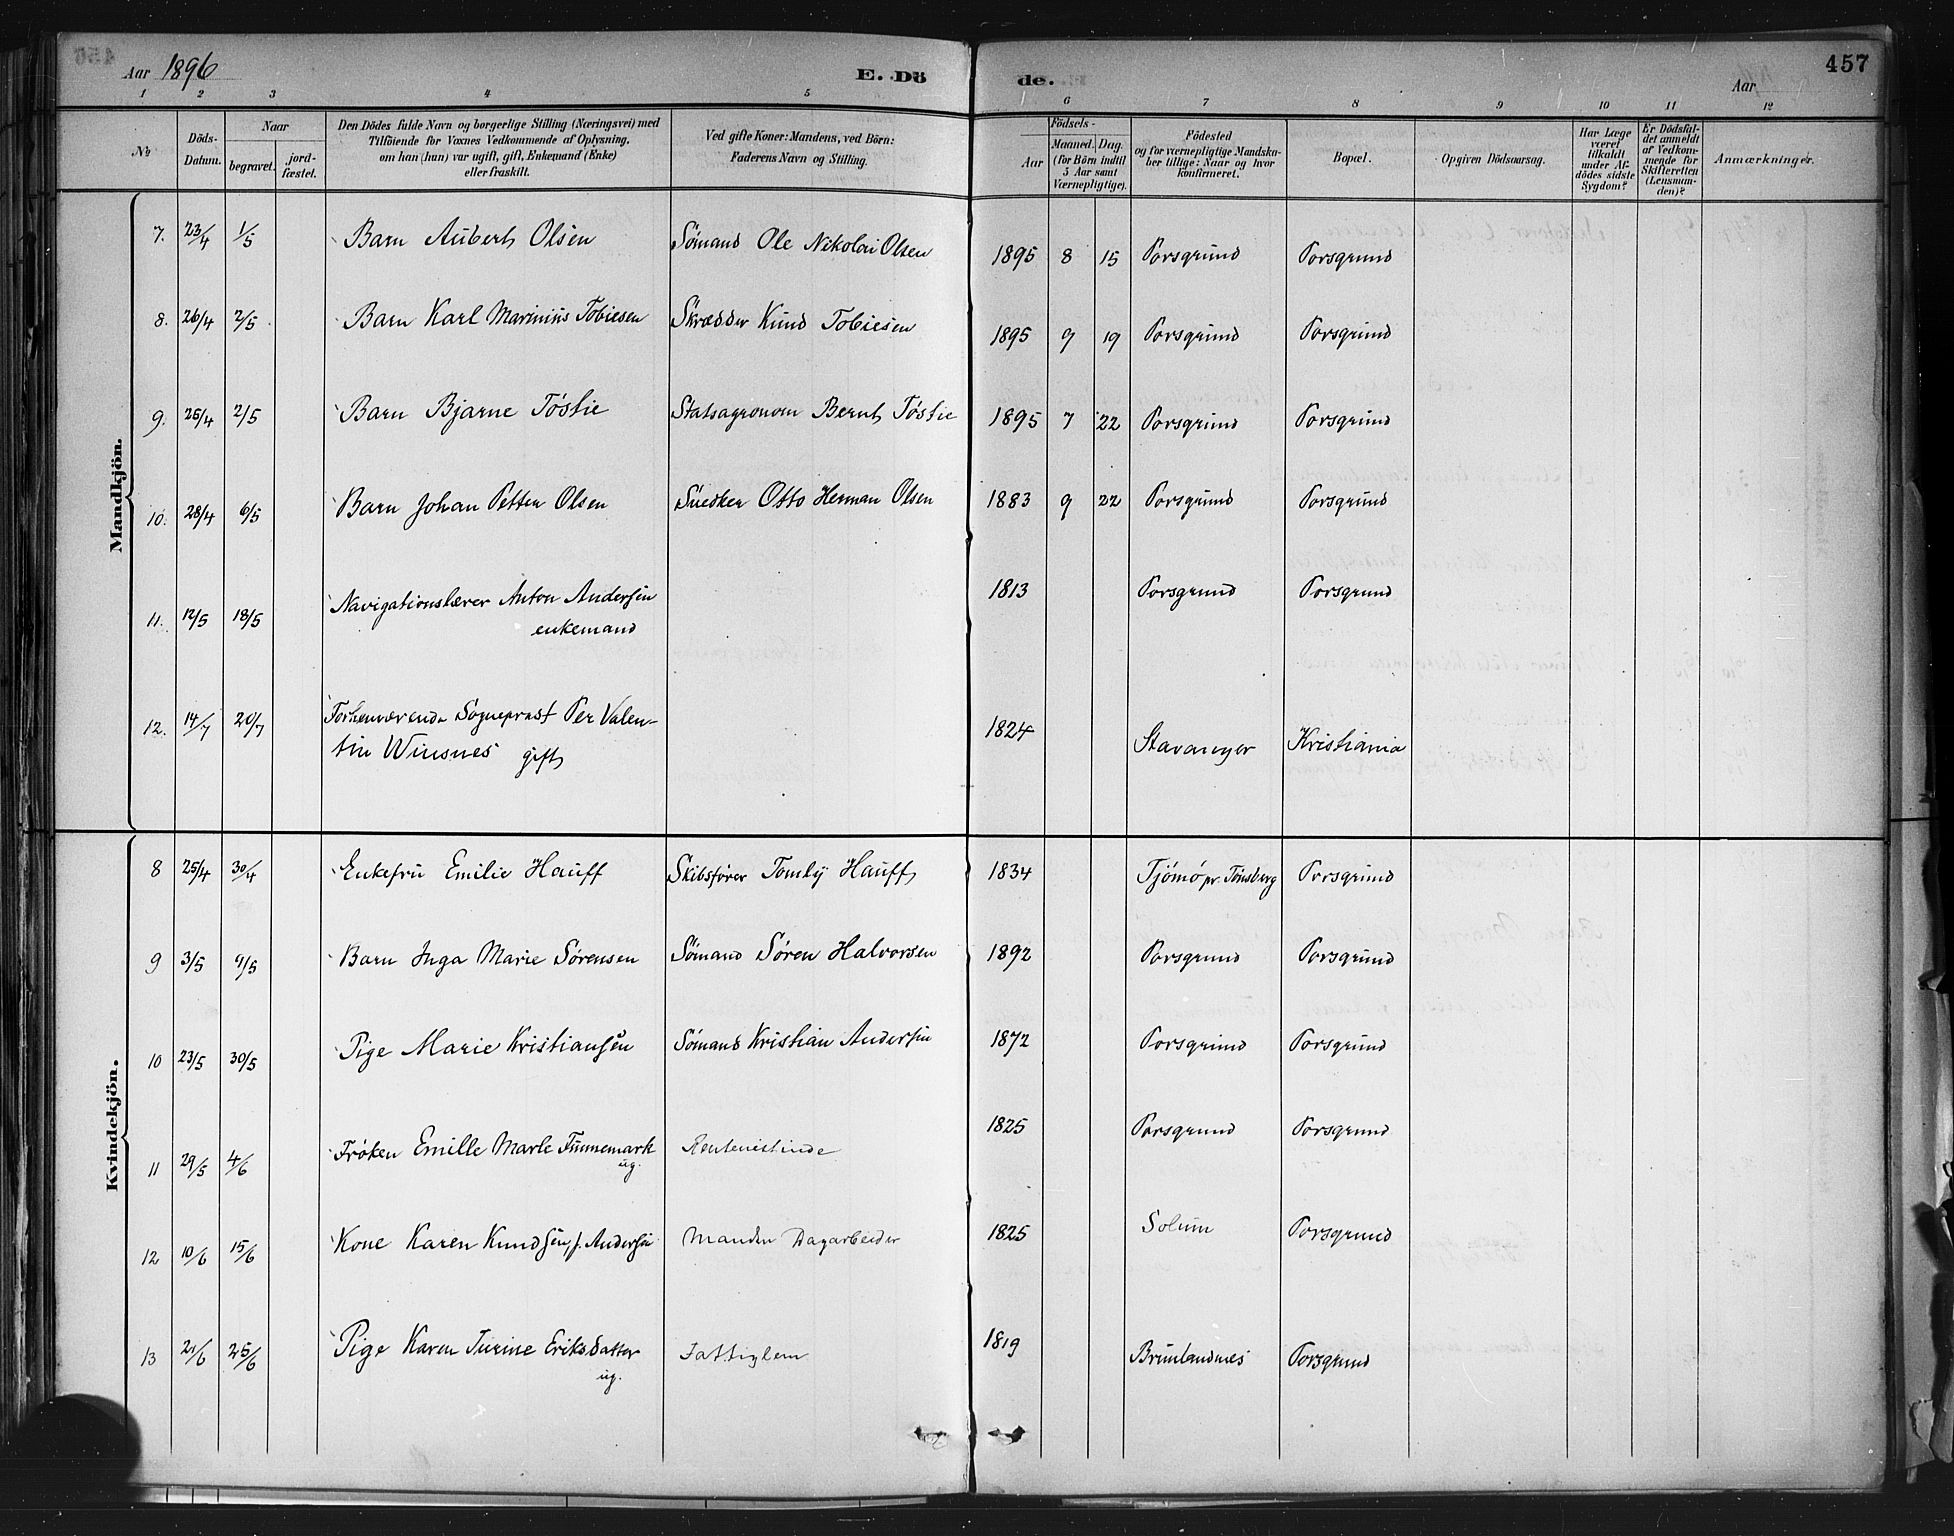 Aar 1896
E. Dö de.
Aar
457
1 2 3 4 5 6 7 8 9 10 11 12
№
Döds-Datum.
Naar
begravet.
jord-fæstet.
Den Dödes fulde Navn og borgerlige Stilling (Næringsvei) med
Tilföiende for Voxnes Vedkommende af Oplysning,
om han (hun) var ugift, gift, Enkemand (Enke)
eller fraskilt.
Ved gifte Koner: Mandens, ved Börn:
Faderens Navn og Stilling.
Födsels-
Aar
Maaned. Dag.
(for Börn indtil
5 Aar samt
Værnepligtige).
Födested
og for værnepligtige Mandska-
ber tillige: Naar og hvor
konfirmeret.
Bopæl.
Opgiven Dödsaarsag.
Har Læge
været
tilkaldt
under Af-
dödes sidste
Sygdom?
Er Dödsfal-
det anmeldt
af Vedkom-
mende for
Skifteretten
(Lensman-
den)?
Anmærkninger.
Mandkjön.
7. 23/4 1/5 Barn Aubert Olsen Sømand Ole Nikolai Olsen 1895 8 15 Porsgrund Porsgrund
8. 26/4 2/5 Barn Karl Marinius Tobiesen Skrædder Knud Tobiesen 1895 9 19 Porsgrund Porsgrund
9. 25/4 2/5 Barn Bjarne Tøstie Statsagronom Bernt Tøstie 1895 7 22 Porsgrund Porsgrund
10. 28/4 6/5 Barn Johan Petter Olsen Snedker Otto Herman Olsen 1883 9 22 Porsgrund Porsgrund
11. 12/5 18/5 Navigationslærer Anton Andersen 1813 Porsgrund Porsgrund
enkemand
12. 14/7 20/7 Forhenværende Sogneprest Per Valen-
tin Winsnes gift 1824 Stavanger Kristiania
Kvindekjön.
8 25/4 30/4 Enkefru Emilie Hauff Skibsfører Hauff 1834 Tjömö pr. Tönsberg Porsgrund
9 3/5 9/5 Barn Inga Marie Sørensen Sømand Søren Halvorsen 1892 Porsgrund Porsgrund
10 23/5 30/5 Pige Marie Kristiansen Sømand Kristian Andersen 1872 Porsgrund Porsgrund
11 29/5 4/6 Frøken Emilie Marie Finnemark Rentenistinde 1825 Porsgrund Porsgrund
ug.
12 10/6 15/6 Kone Karen Knudsen, f. Andersen Manden Dagarbeider 1825 Solum Porsgrund
13 21/6 25/6 Pige Karen Turine Eriksdatter Fattiglem 1819 Brunlandnes Porsgrund
ug.